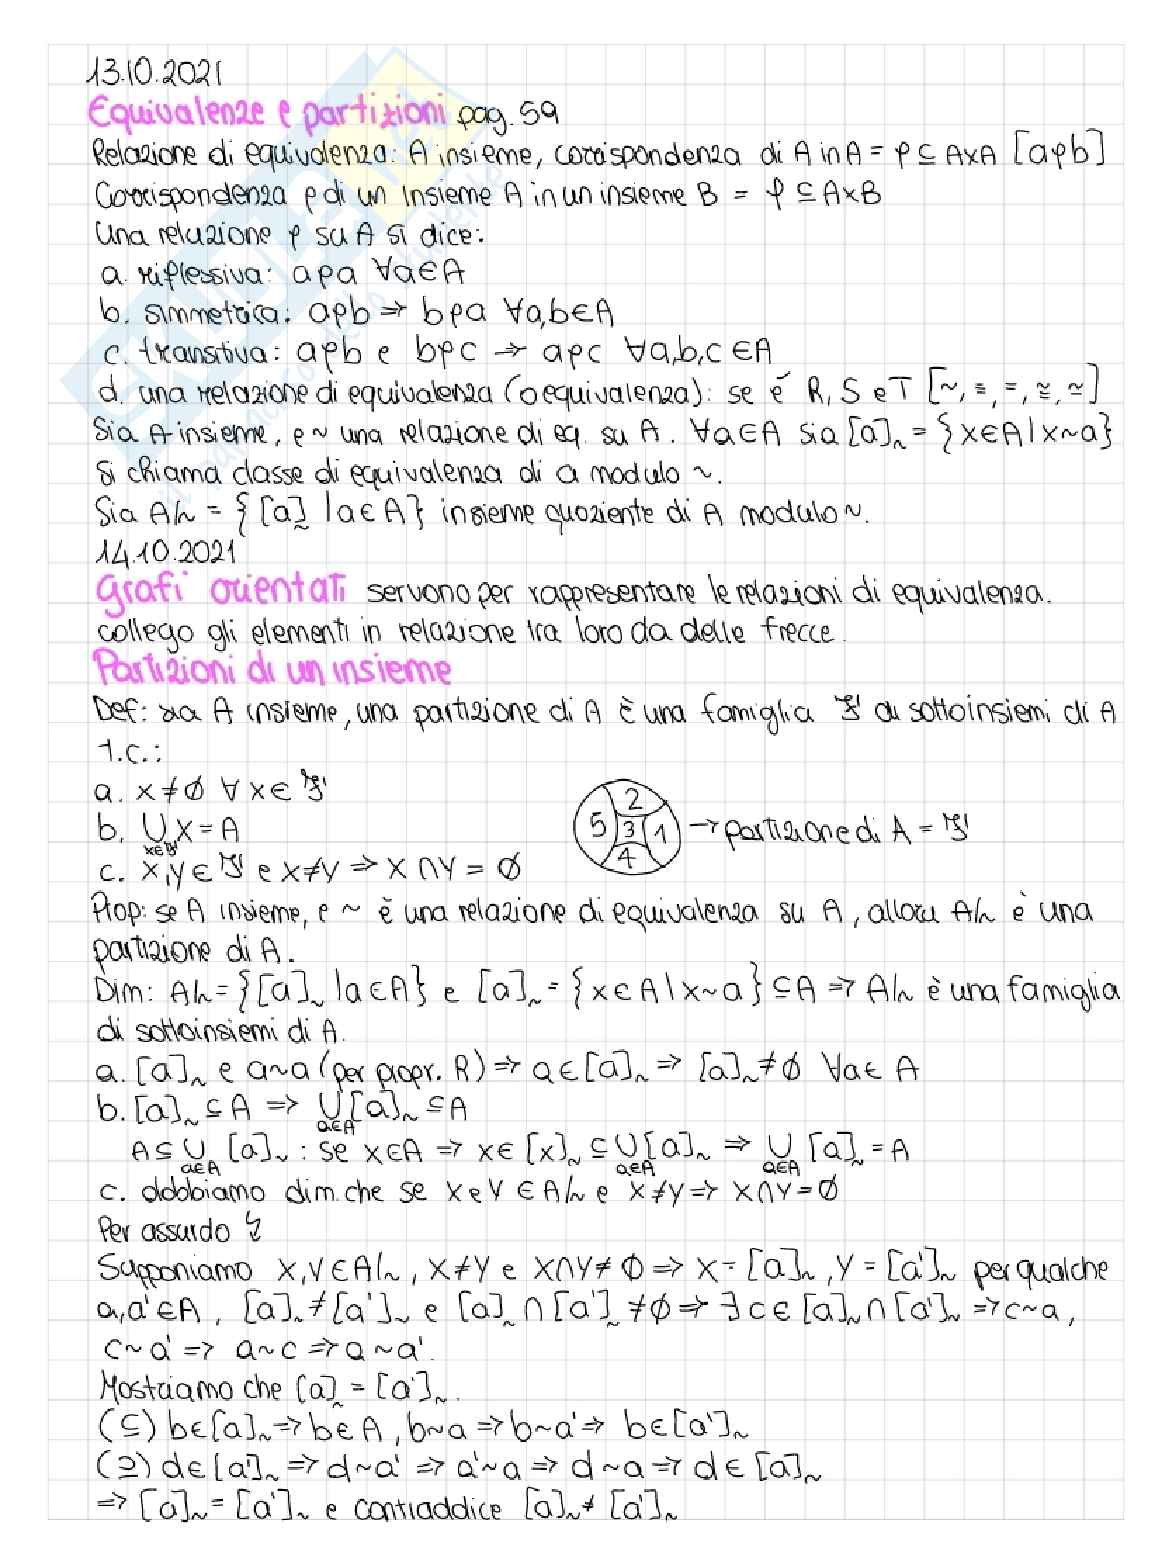 13.10.2021
Equivalenze e partizioni pag. 59
Relazione di equivalenza: A insieme, corrispondenza di A in A = ρ ⊆ A×A [aρb]
Corrispondenza ρ di un insieme A in un insieme B = ρ ⊆ A×B
Una relazione ρ su A si dice:
a. riflessiva: aρa ∀a∈A
b. simmetrica: aρb ⇒ bρa ∀a,b∈A
c. transitiva: aρb e bρc ⇒ aρc ∀a,b,c ∈A
d. una relazione di equivalenza (o equivalenza): se é R, S e T [~, ≡, =, ≅, ≃]
Sia A insieme, e ~ una relazione di eq. su A. ∀a∈A sia [a]~ = {x∈A | x~a}
Si chiama classe di equivalenza di a modulo ~.
Sia A/~ = {[a]~ | a∈A} insieme quoziente di A modulo ~.
14.10.2021
Grafi orientati servono per rappresentare le relazioni di equivalenza.
collego gli elementi in relazione tra loro da delle frecce.
Partizioni di un insieme
Def: sia A insieme, una partizione di A è una famiglia ℱ di sottoinsiemi di A
t.c.:
a. X≠∅ ∀ X∈ ℱ
b. ⋃X∈ℱ X = A
c. X,Y∈ ℱ e X≠Y ⇒ X∩Y = ∅
5 2 3 1 4 → partizione di A = ℱ
Prop: se A insieme, e ~ è una relazione di equivalenza su A, allora A/~ è una
partizione di A.
Dim: A/~ = {[a]~ | a∈A} e [a]~ = {x∈A | x~a} ⊆A ⇒ A/~ è una famiglia
di sottoinsiemi di A.
a. [a]~ e a~a (per propr. R) ⇒ a∈[a]~ ⇒ [a]~≠∅ ∀a∈ A
b. [a]~⊆A ⇒ ⋃a∈A [a]~ ⊆A
A⊆ ⋃a∈A [a]~ : se x∈A ⇒ x∈ [x]~ ⊆ ⋃a∈A [a]~ ⇒ ⋃a∈A [a]~ = A
c. dobbiamo dim. che se X e Y ∈A/~ e X≠Y ⇒ X∩Y=∅
Per assurdo ↯
Supponiamo X,Y∈A/~, X≠Y e X∩Y≠∅ ⇒ X=[a]~, Y=[a']~ per qualche
a,a'∈A, [a]~≠[a']~ e [a]~∩[a']~≠∅ ⇒ ∃c∈[a]~∩[a']~ ⇒ c~a,
c~a' ⇒ a~c ⇒ a~a'.
Mostriamo che [a]~ = [a']~.
(⊆) b∈[a]~ ⇒ b∈A, b~a ⇒ b~a' ⇒ b∈[a']~
(⊇) d∈[a']~ ⇒ d~a' ⇒ a'~a ⇒ d~a ⇒ d∈[a]~
⇒ [a]~=[a']~ e contraddice [a]~≠[a']~